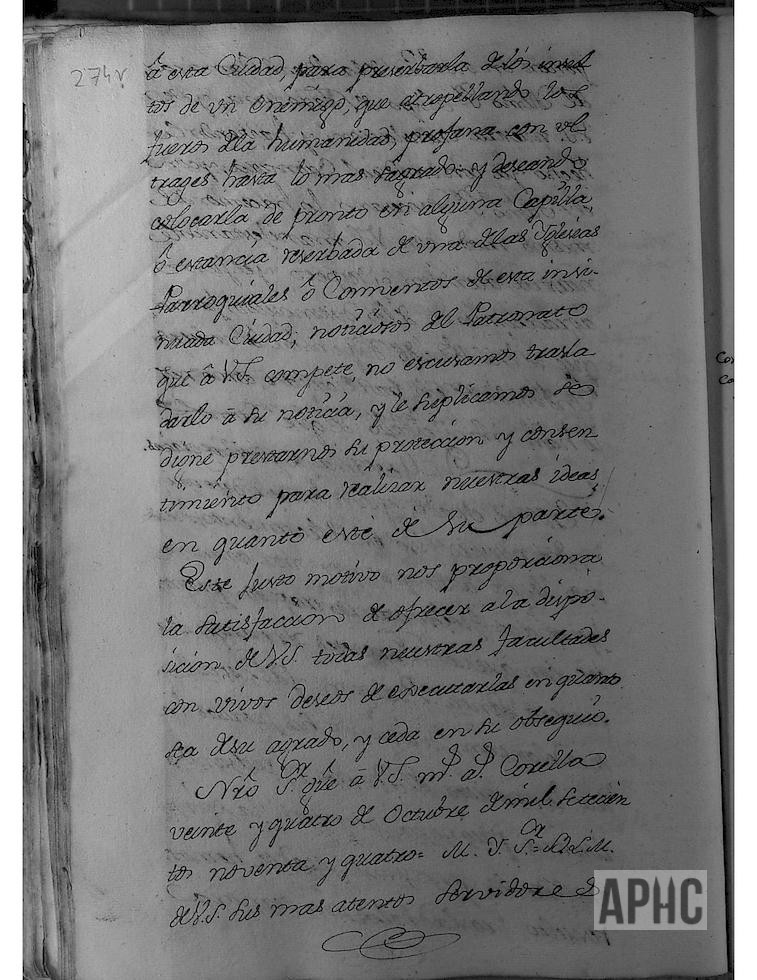 274v
â esta Ciudad, para preserbarla de los insul
tos de un enemigo, que atropellando los
fueros dela humanidad, profana con ul
trages hasta lo mas sagrado y deseando
colocarla de pronto en alguna Capilla,
ô estancia reserbada de una delas Yglesias
Parroquiales ô Conventos de esta insi-
nuada Ciudad; noticiosos del Patronato
que â V.S. compete, no escusamos trasla
darlo â su noticia, y le suplicamos se
digne prestarnos su proteccion y consen
timiento para realizar nuestras ideas
en quanto esté de su parte.
Este justo motivo nos proporciona
la satisfaccion de ofrecer ala dispo-
sicion de V.S. todas nuestras facultades
con vivos deseos de executarlas en quanto
sea desu agrado, y ceda en su obsequio.
Nrô Sor. gûe â V.S. ms. as. Corella
veinte y quatro de Octubre de mil setecien
tos noventa y quatro= M. Y. Sor.= B.L.M.
de V.S. sus mas atentos servidores
Co
ca
APHC